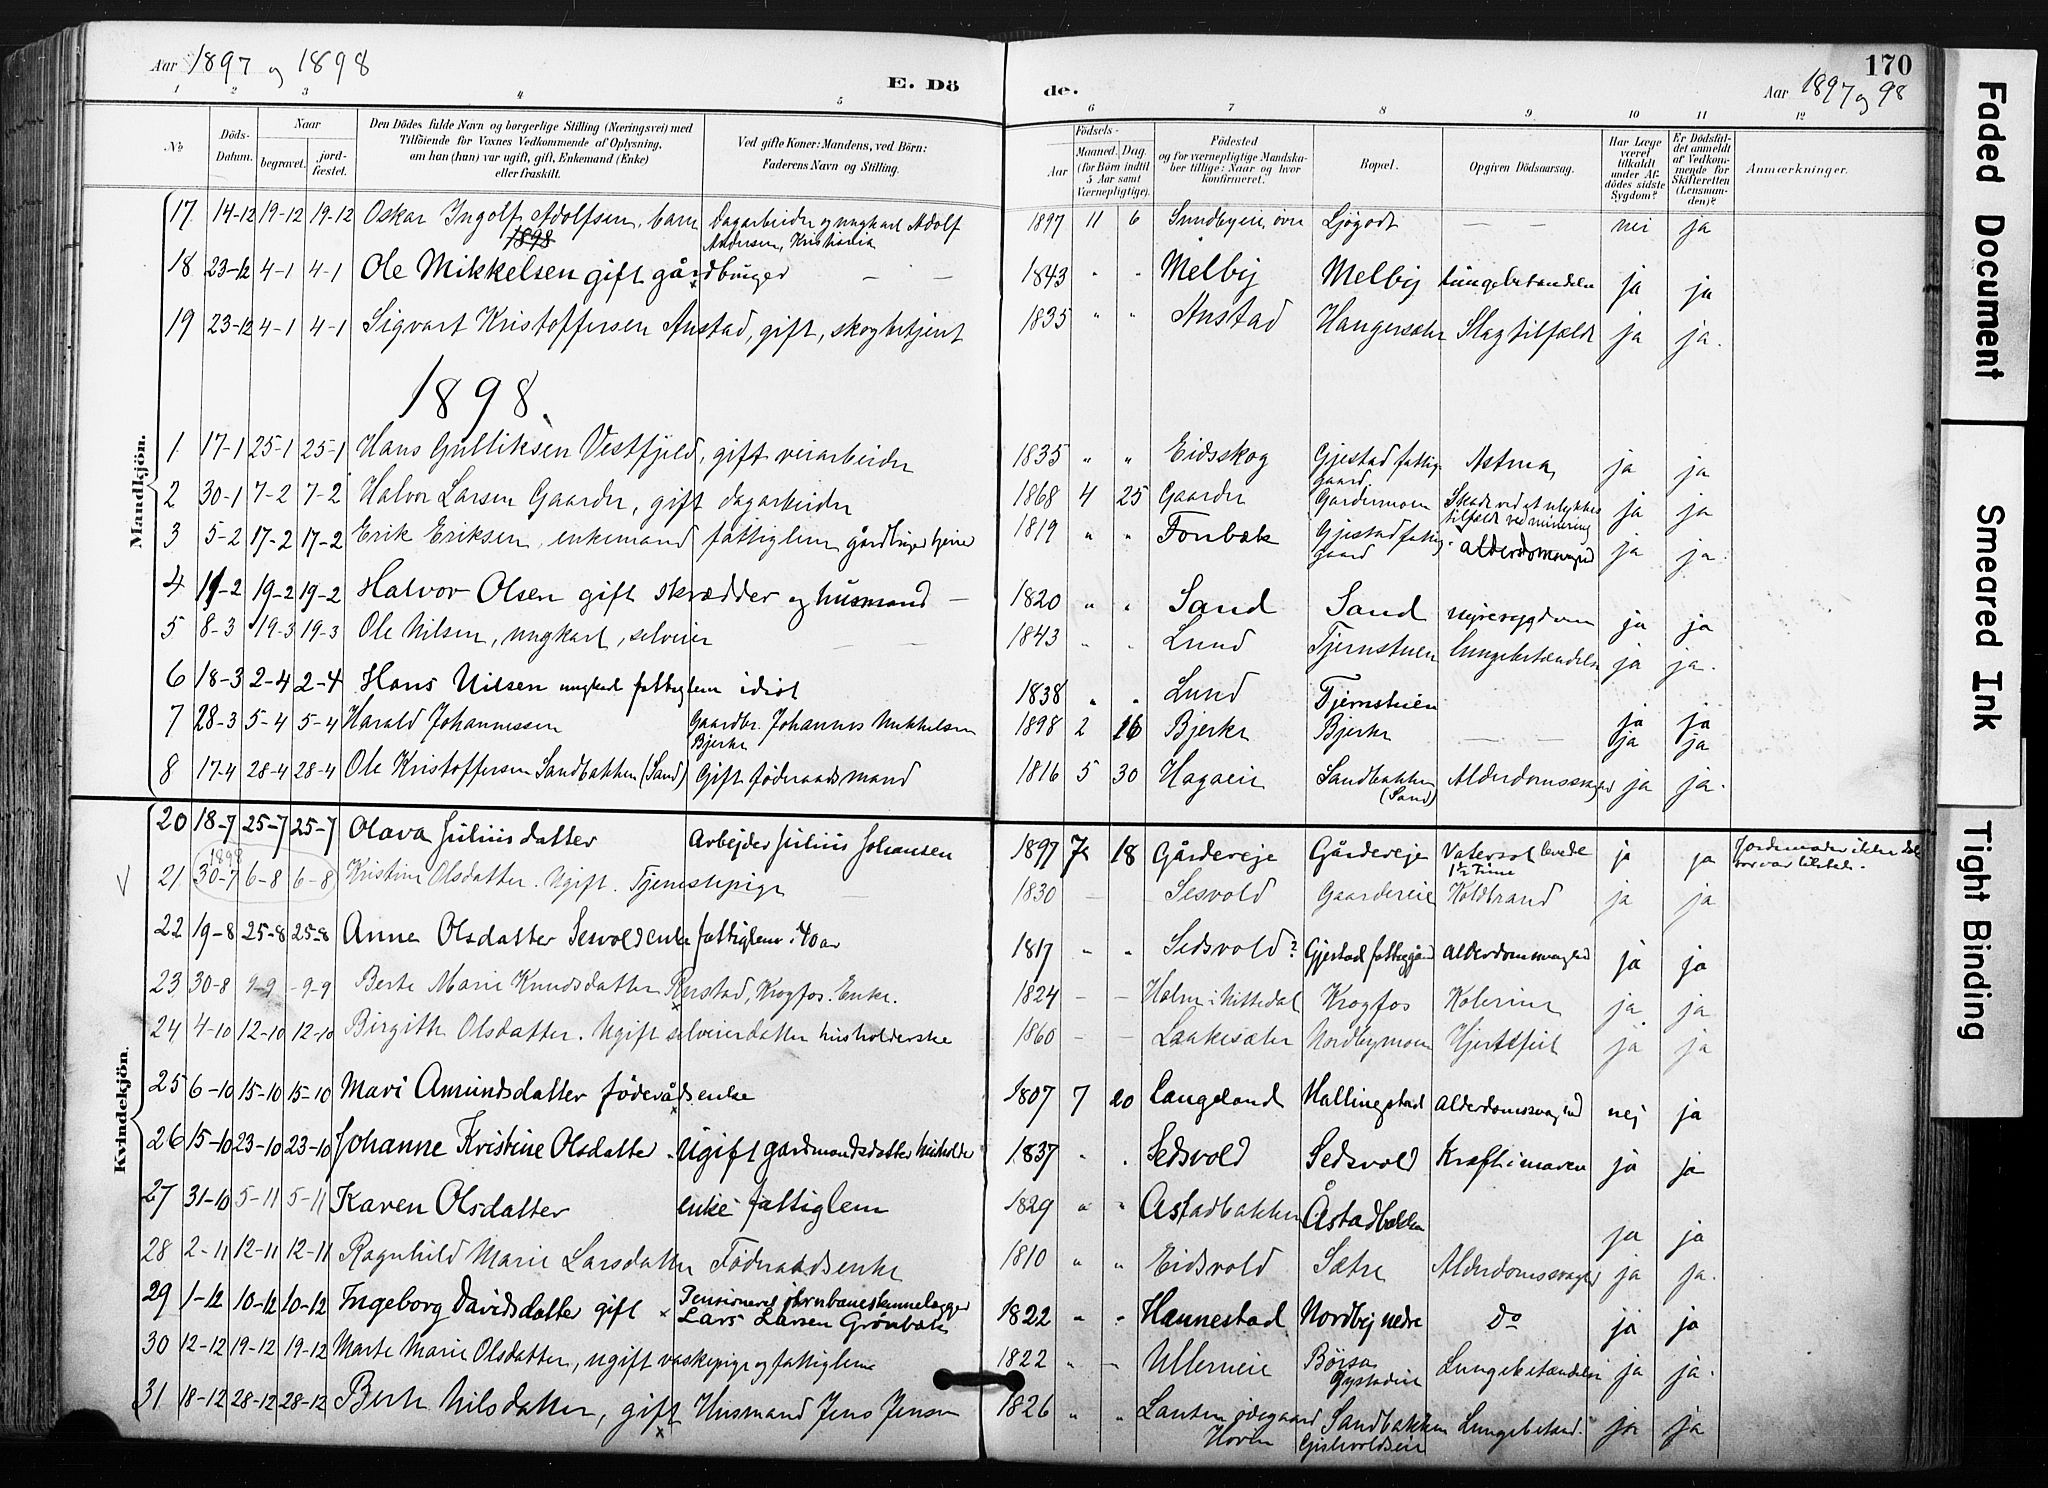 Aar 1897 og 1898
E. Döde.
170
Aar 1897 og 98
1 2 3 4 5 6 7 8 9 10 11 12
No
Döds-Datum.
Naar
begravet.
jord-fæstet.
Den Dödes fulde Navn og borgerlige Stilling (Næringsvei) med
Tilföiende for Voxnes Vedkommende af Oplysning,
om han (hun) var ugift, gift, Enkemand (Enke)
eller fraskilt.
Ved gifte Koner: Mandens, ved Börn:
Faderens Navn og Stilling.
Födsels-
Aar
Maaned. Dag.
(for Börn indtil
5 Aar samt
Værnepligtige).
Födested
og for værnepligtige Mandska-
ber tillige: Naar og hvor
konfirmeret.
Bopæl.
Opgiven Dödsaarsag.
Har Læge
været
tilkaldt
under Af-
dödes sidste
Sygdom?
Er Dödsfal-
det anmeldt
af Vedkom-
mende for
Skifteretten
(Lensman-
den)?
Anmærkninger.
Mandkjön.
17 14-12 19-12 19-12 Oskar Ingolf Adolfsen, barn Dagarbeider og ungkarl Adolf Andersen, Kristiania 1897 11 6 Sundbyeie, övre Ljøgodt — — nei ja
1898
18 23-12 4-1 4-1 Ole Mikkelsen gift gårdbruger — — 1843 " " Melby Melby Lungebetændelse ja ja
19 23-12 4-1 4-1 Sigvart Kristoffersen Anstad, gift, skogbetjent 1835 " " Anstad Haugersæter Slagtilfælde ja ja.
1898.
1 17-1 25-1 25-1 Hans Gulliksen Vestfjeld, gift veiarbeider 1835 " " Eidsskog Gjestad fattiggaard. Astma, ja ja
2 30-1 7-2 7-2 Halvor Larsen Gaarder, gift dagarbeider 1868 4 25 Gaarder Gardermoen Skade ved et ulykkestilfælde ved minering ja ja
3 5-2 17-2 17-2 Erik Eriksen, enkemand fattiglem 1819 " " Fonbæk Gjestad fattiggaard alderdomssvaghed ja ja
4 11-2 19-2 19-2 Halvor Olsen gift skrædder og husmand — 1820 " " Sand Sand nyresygdom ja ja
5 8-3 19-3 19-3 Ole Nilsen, ungkarl, selveier — 1843 " " Lund Tjernstuen Lungebetændelse ja ja.
6 18-3 2-4 2-4 Hans Nilsen ungkarl fattiglem idiot 1838 " " Lund Tjernstuen ja ja
7 28-3 5-4 5-4 Harald Johannessen Gaardbr. Johannes Mikkelsen Bjerke 1898 2 16 Bjerke Bjerke — — ja ja
8 17-4 28-4 28-4 Ole Kristoffersen Sandbakken (Sand) Gift föderaadsmand 1816 5 30 Hagaeie Sandbakken (Sand) Alderdomssvaghed ja ja.
Kvindekjön.
20 18-7 25-7 25-7 Olava Juliusdatter Arbejder Julius Johansen 1897 7 18 Gårdereje Gårdereje Vatersot levede 1½ Time ja ja
1898
21. 30-7 6-8 6-8 Kristine Olsdatter. Ugift. Tjenestepige — 1830 — — Sesvold Gaardereie Koldbrand ja ja
22 19-8 25-8 25-8 Anne Olsdatter Sesvold enke fattiglem i 40 år 1817 " " Sedsvold? Gjestad fattiggård alderdomssvaghed ja ja
23 30-8 9-9 9-9 Berte Marie Knudsdatter Rustad, Krogfos. Enke. 1824 — — Holm i Nittedal Krogfos Kolerine ja ja.
24 4-10 12-10 12-10 Birgitte Olsdatter. Ugift selveierdatter husholderske 1860 — — Laakesæter Nordbymoen Hjertefeil ja ja
25 6-10 15-10 15-10 Mari Amundsdatter föderådsenke 1807 7 20 Langeland Hallingstad Alderdomssvaghed nej ja
26 15-10 23-10 23-10 Johanne Kristine Olsdatter Ugift gårdmandsdatter 1837 " " Sedsvold Sedsvold Kræft i maven ja ja
27 31-10 5-11 5-11 Karen Olsdatter enke fattiglem 1829 " " Åstadbakken Åstadbakken ja ja
28 2-11 12-11 12-11 Ragnhild Marie Larsdatter Föderaadsenke 1810 " " Eidsvold Sætre Alderdomssvaghed ja ja.
29 1-12 10-12 10-12 Ingeborg Davidsdatter gift Pensioneret jernbaneskinnelægger Lars Larsen Grönbæk 1822 " " Hannestad Nordby nedre Do ja ja
30 12-12 19-12 19-12 Marte Marie Olsdatter, ugift vaskepige og fattiglem 1822 " — Ullerneie Lungebetændelse ja ja.
31 18-12 28-12 28-12 Berte Nilsdatter, gift Husmand Jens Jensen 1826 " " Sandbakken Lungebetænd. ja ja
Faded Document
Smeared Ink
Tight Binding